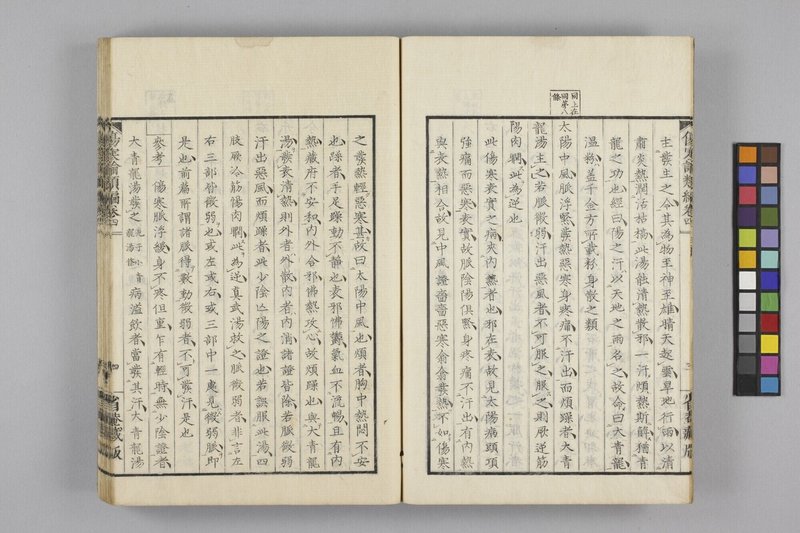 同上在
同第八
條
傷寒論類編卷四
主發生之令其為物至神至雄晴天起靈旱地行雨以清
肅炎熱潤活枯槁此湯能清熱散邪一汗煩熱斯解猶青
龍之功也經曰陽之汗以天地之雨名之故命曰大青龍
溫粉蓋千金方所載粉身散之類
太陽中風脈浮緊發熱惡寒身疼痛不汗出而煩躁者大青
龍湯主之若脈微弱汗出惡風者不可服之服之則厥逆筋
陽肉瞤此為逆也
此傷寒表實之病夾內熱者也邪在表故見太陽病頭項
強痛而惡寒表實故脈陰陽俱緊身疼痛不汗出有內熱
與表熱相合故見中風證嗇嗇惡寒翕翕發熱不如傷寒
之發熱輕惡寒甚故曰太陽中風也煩者胸中熱悶不安
也躁者手足躁動不靜也表邪怫鬱氣血不流暢且有內
熱藏府不安和內外合邪怫熱攻心故煩躁也與大青龍
湯發表清熱則外者外散內者內消諸證皆除若脈微弱
汗出惡風而煩躁者此少陰亡陽之證也若誤服此湯四
肢厥冷筋惕肉瞤此為逆真武湯救之脈微弱者非言左
右三部皆微弱也或左或右或三部中一處見微弱脈即
是也前篇所謂諸脈得數動微弱者不可發汗是也
參考 傷寒脈浮緩身不疼但重乍有輕時無少陰證者
大青龍湯發之 病溢飲者當發其汗大青龍湯
傷寒論類編卷四
四
省卷藏版